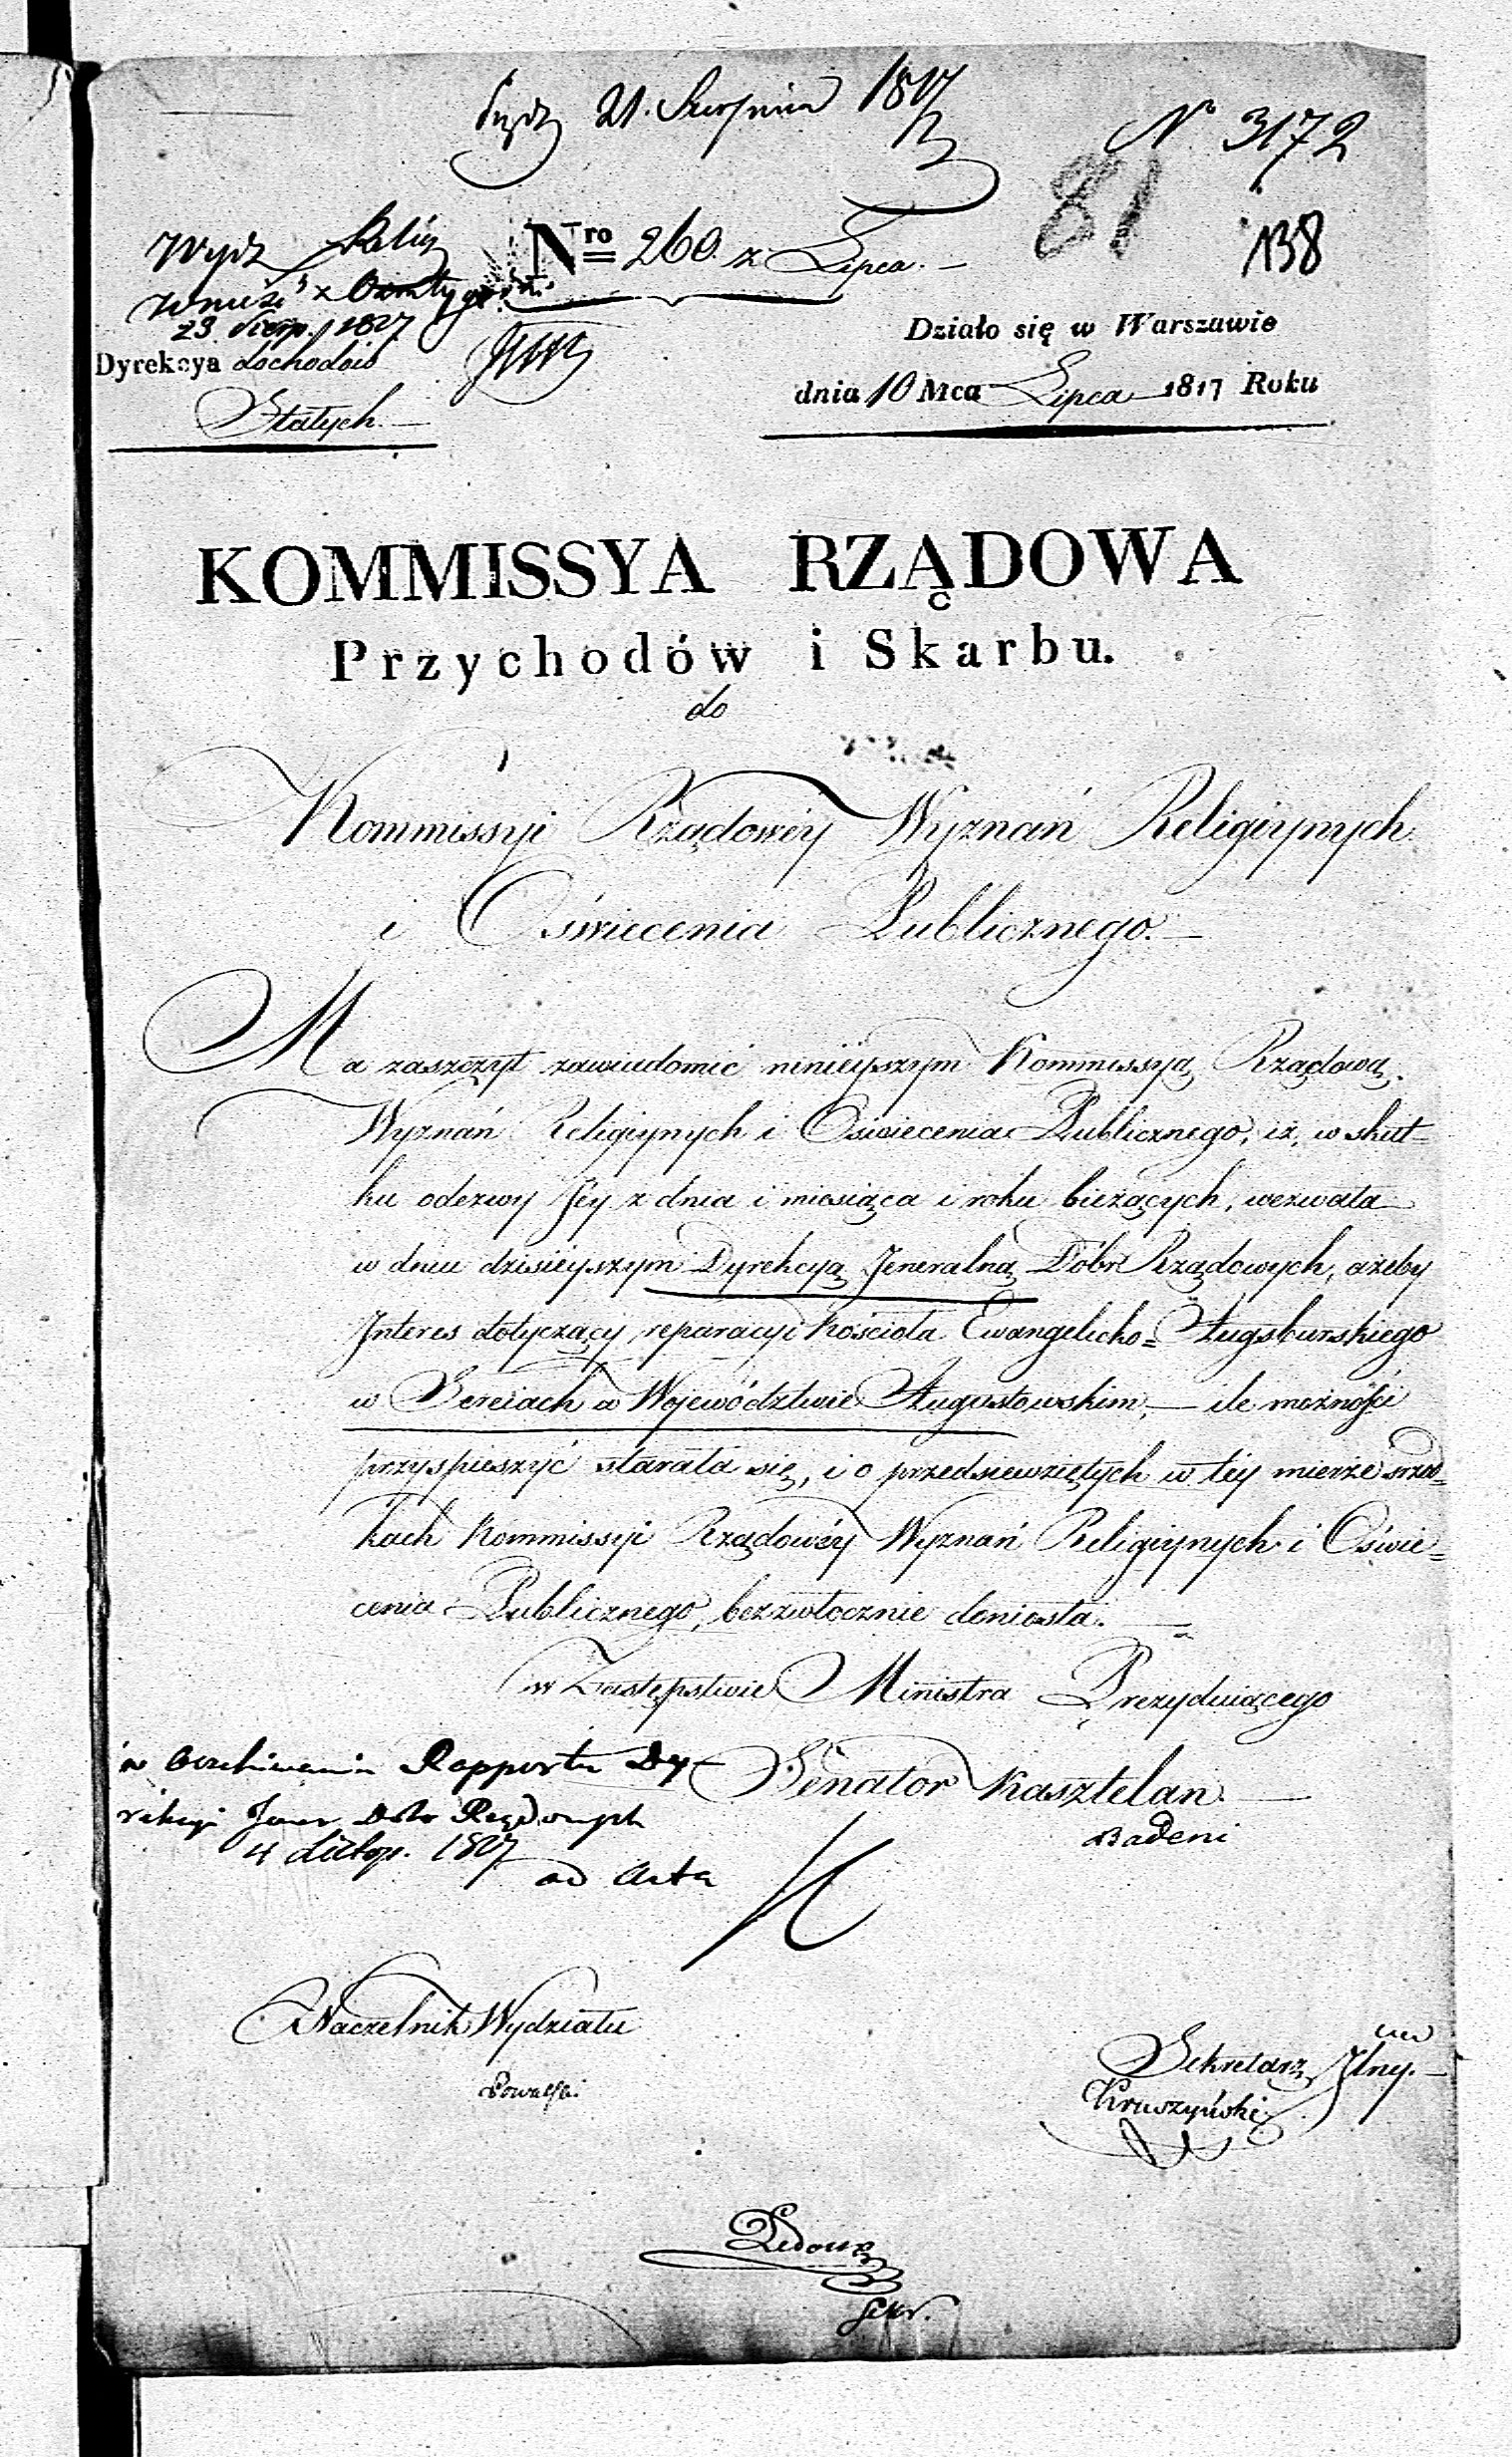 21. Sierpnia 1817
N° 3172
81
138
Wydz Relig
wnieść
23 Sierp. 1817
Nro 260. z Lipca.
Dyrekcya dochodów
Stałych.
Działo się w Warszawie
dnia 10 Mca Lipca 1817 Roku
KOMMISSYA RZĄDOWA
Przychodów i Skarbu.
do
Kommissyi Rządowéy Wyznań Religiynych
i Oświecenia Publicznego.
Ma zaszczyt zawiadomić ninieyszym Kommissyą Rządową
Wyznań Religiynych i Oświecenia Publicznego, iż, w skut=
ku odezwy Jey z dnia i miesiąca i roku bieżących, wezwała
w dniu dzisieyszym Dyrekcyą Jeneralną Dóbr Rządowych, ażeby
Interes dotyczący reparacyi Kościoła Ewangelicko= Augsburskiego
w Sereiach w Województwie Augustowskim, — ile możności
przyspieszyć starała się, i o przedsiewziętych w tey mierze srzod=
kach Kommissyi Rządowéy Wyznań Religiynych i Oświe=
cenia Publicznego, bezzwłocznie doniosła.
w Zastępstwie Ministra Prezyduiącego
Senator Kasztelan
Badeni
w oczekiwaniu Rapportu Dy-
rekcyi Jener Dobr Rządowych
4 Listop. 1817
ad Acta
Naczelnik Wydziału
Sekretarz Jlny.
Kruszyński
Sekr.